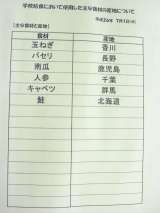 学校給食において使用した主な食材の産地について
7月1日(水)
【主な食材と産地】
食材 産地
玉ねぎ 香川
パセリ 長野
南瓜 鹿児島
人参 千葉
キャベツ 群馬
鮭 北海道